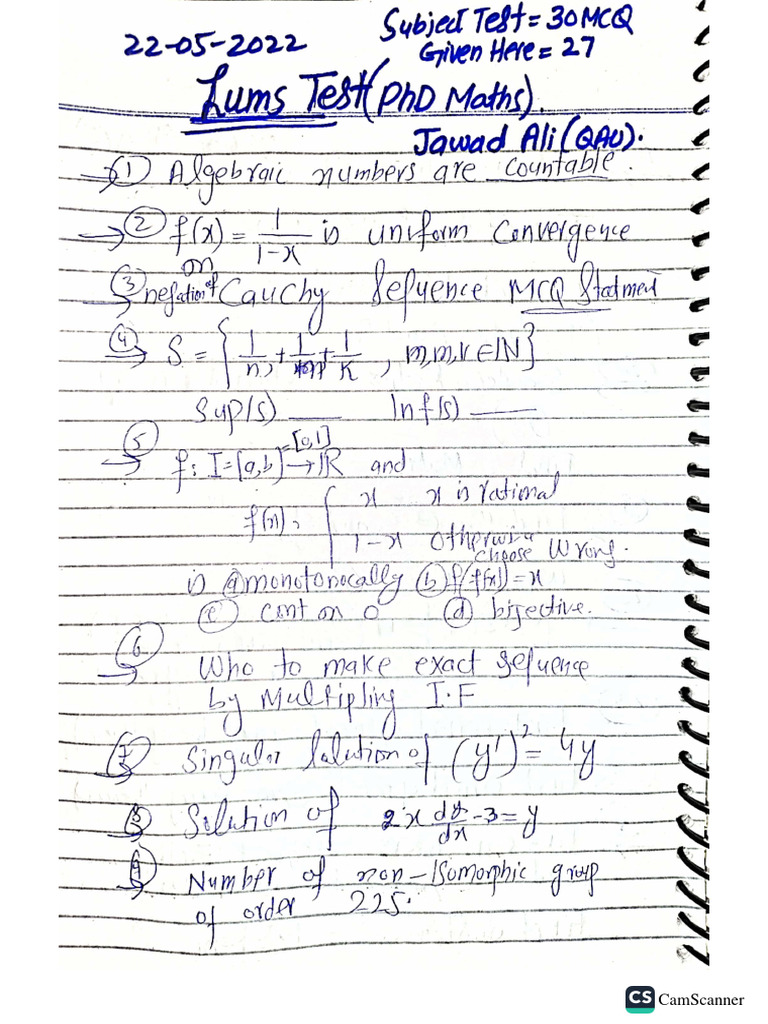 Subject Test = 30 MCQ
22-05-2022 Given Here = 27
Lums Test (PhD Maths).
Jawad Ali (QAU).
→ (1) Algebraic numbers are countable.
→ (2) f(x) = 1/(1-x) is uniform Convergence
on
(3) negation of Cauchy Sequence MCQ Statment
(4) S = { 1/n + 1/m + 1/K , m,m,k ∈ IN }
Sup(s) ___ Inf(s) ___
(5) f: I = [a,b] = [0,1] → IR and
f(x) = { x x is rational
1-x otherwise
choose wrong.
is (a) monotonocally (b) f(f(x)) = x
(c) cont on 0 (d) bijective.
(6) Who to make exact sequence
by Multipling I.F
(7) Singular Solution of (y')² = 4y
(8) Solution of 2x dy/dx - 3 = y
(9) Number of non-Isomorphic group
of order 225.
CS CamScanner